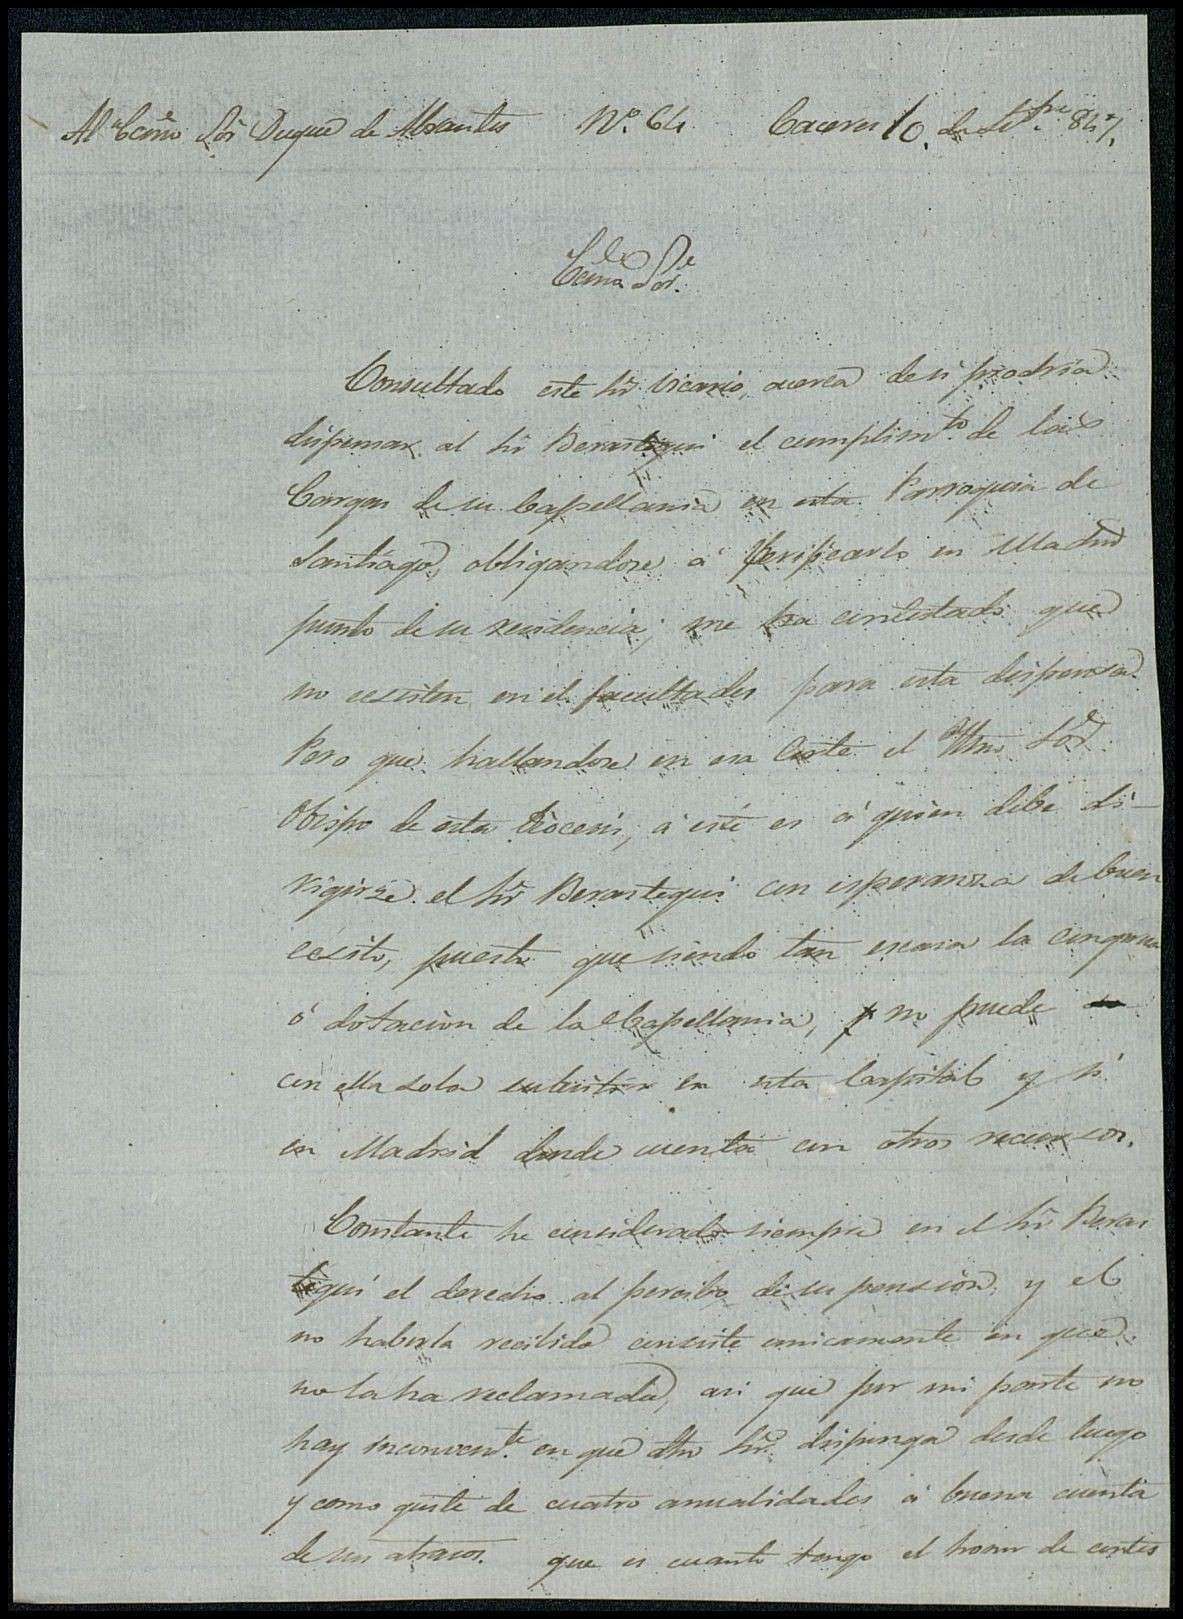 Al Ecmo Sor Duque de Abrantes Nº. 64 Caceres 10. de Setbre 847.
Ecmo Sor.
Consultado este Sr Vicario, acerca de si podria
dispensar al Sr Berastegui el cumplimto. de las
Cargas de su Capellania en esta Parroquia de
Santiago, obligandose á verificarlo en Madrid
punto de su residencia; me ha contestado que
no ecsisten en él facultades para esta dispensa.
Pero que hallandose en esa Corte el Iltmo Sor
Obispo de esta Diocesis, á este es á quien debe di-
rigirse el Sr Berastegui con esperanza de buen
ecsito, puesto que siendo tan escasa la congrua
ó dotacion de la Capellania, no puede
con ella sola subsistir en esta Capital y si
en Madrid donde cuenta con otros recursos.
Constante he considerado siempre en el Sr Beras
tegui el derecho al percibo de su pension, y el
no haberla recibido consiste unicamente en que
no la ha reclamado, asi que por mi parte no
hay inconvente. en que dho Sr. disponga desde luego
y como guste de cuatro anualidades á buena cuenta
de sus atrasos. que es cuanto tengo el honor de contes